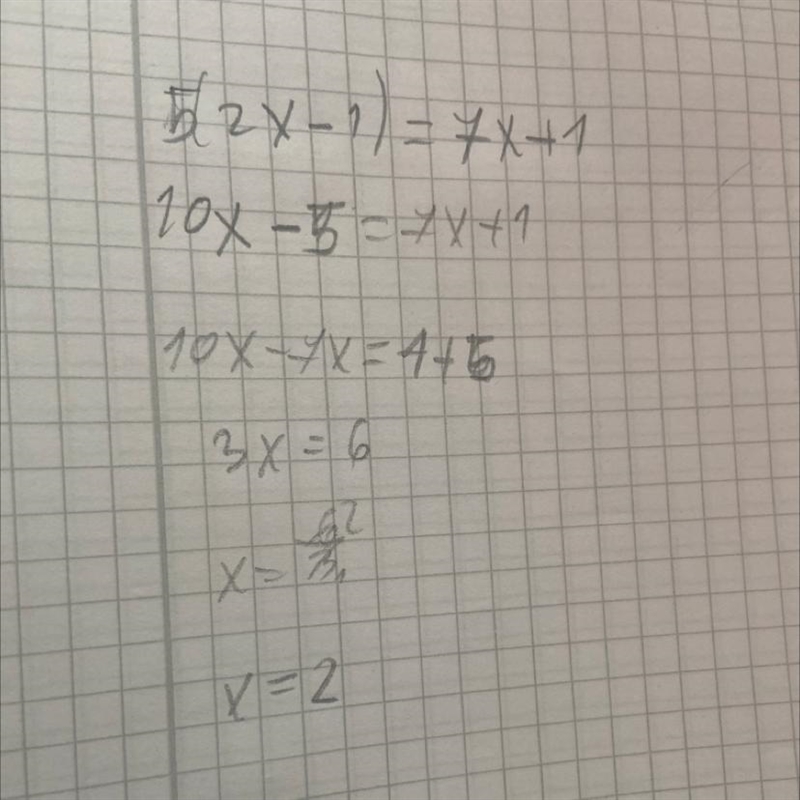 5(2x-1)=7x+1
10x-5=7x+1
10x-7x=1+5
3x=6
x=6/3
x=2